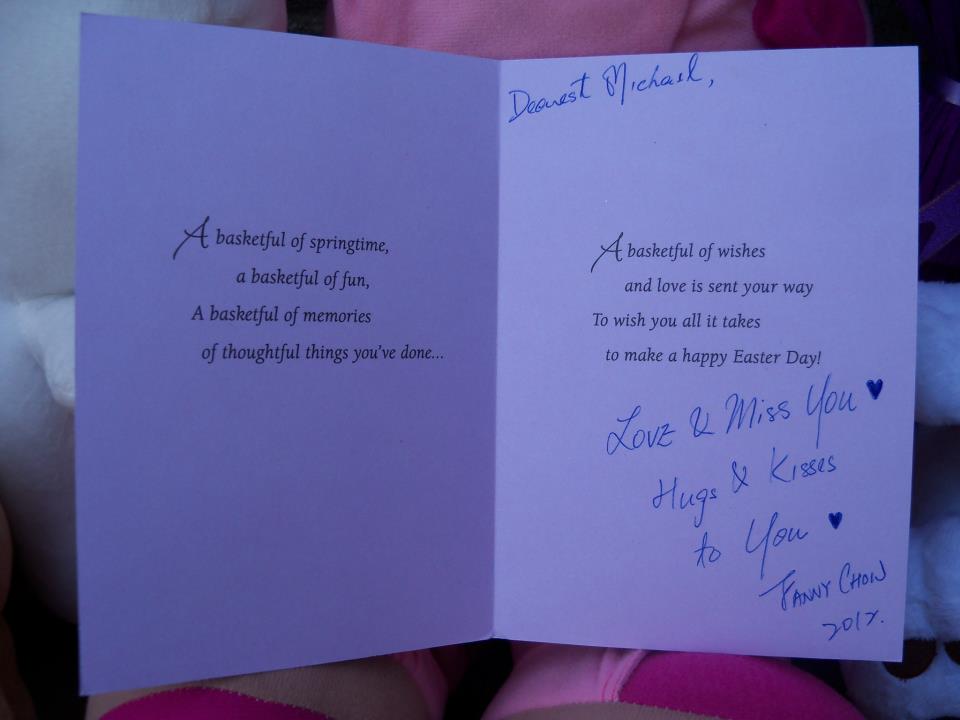 A basketful of springtime,
a basketful of fun,
A basketful of memories
of thoughtful things you've done...
Dearest Michael,
A basketful of wishes
and love is sent your way
To wish you all it takes
to make a happy Easter Day!
Love & Miss You ♥
Hugs & Kisses
to You ♥
FANNY CHOW
2012.